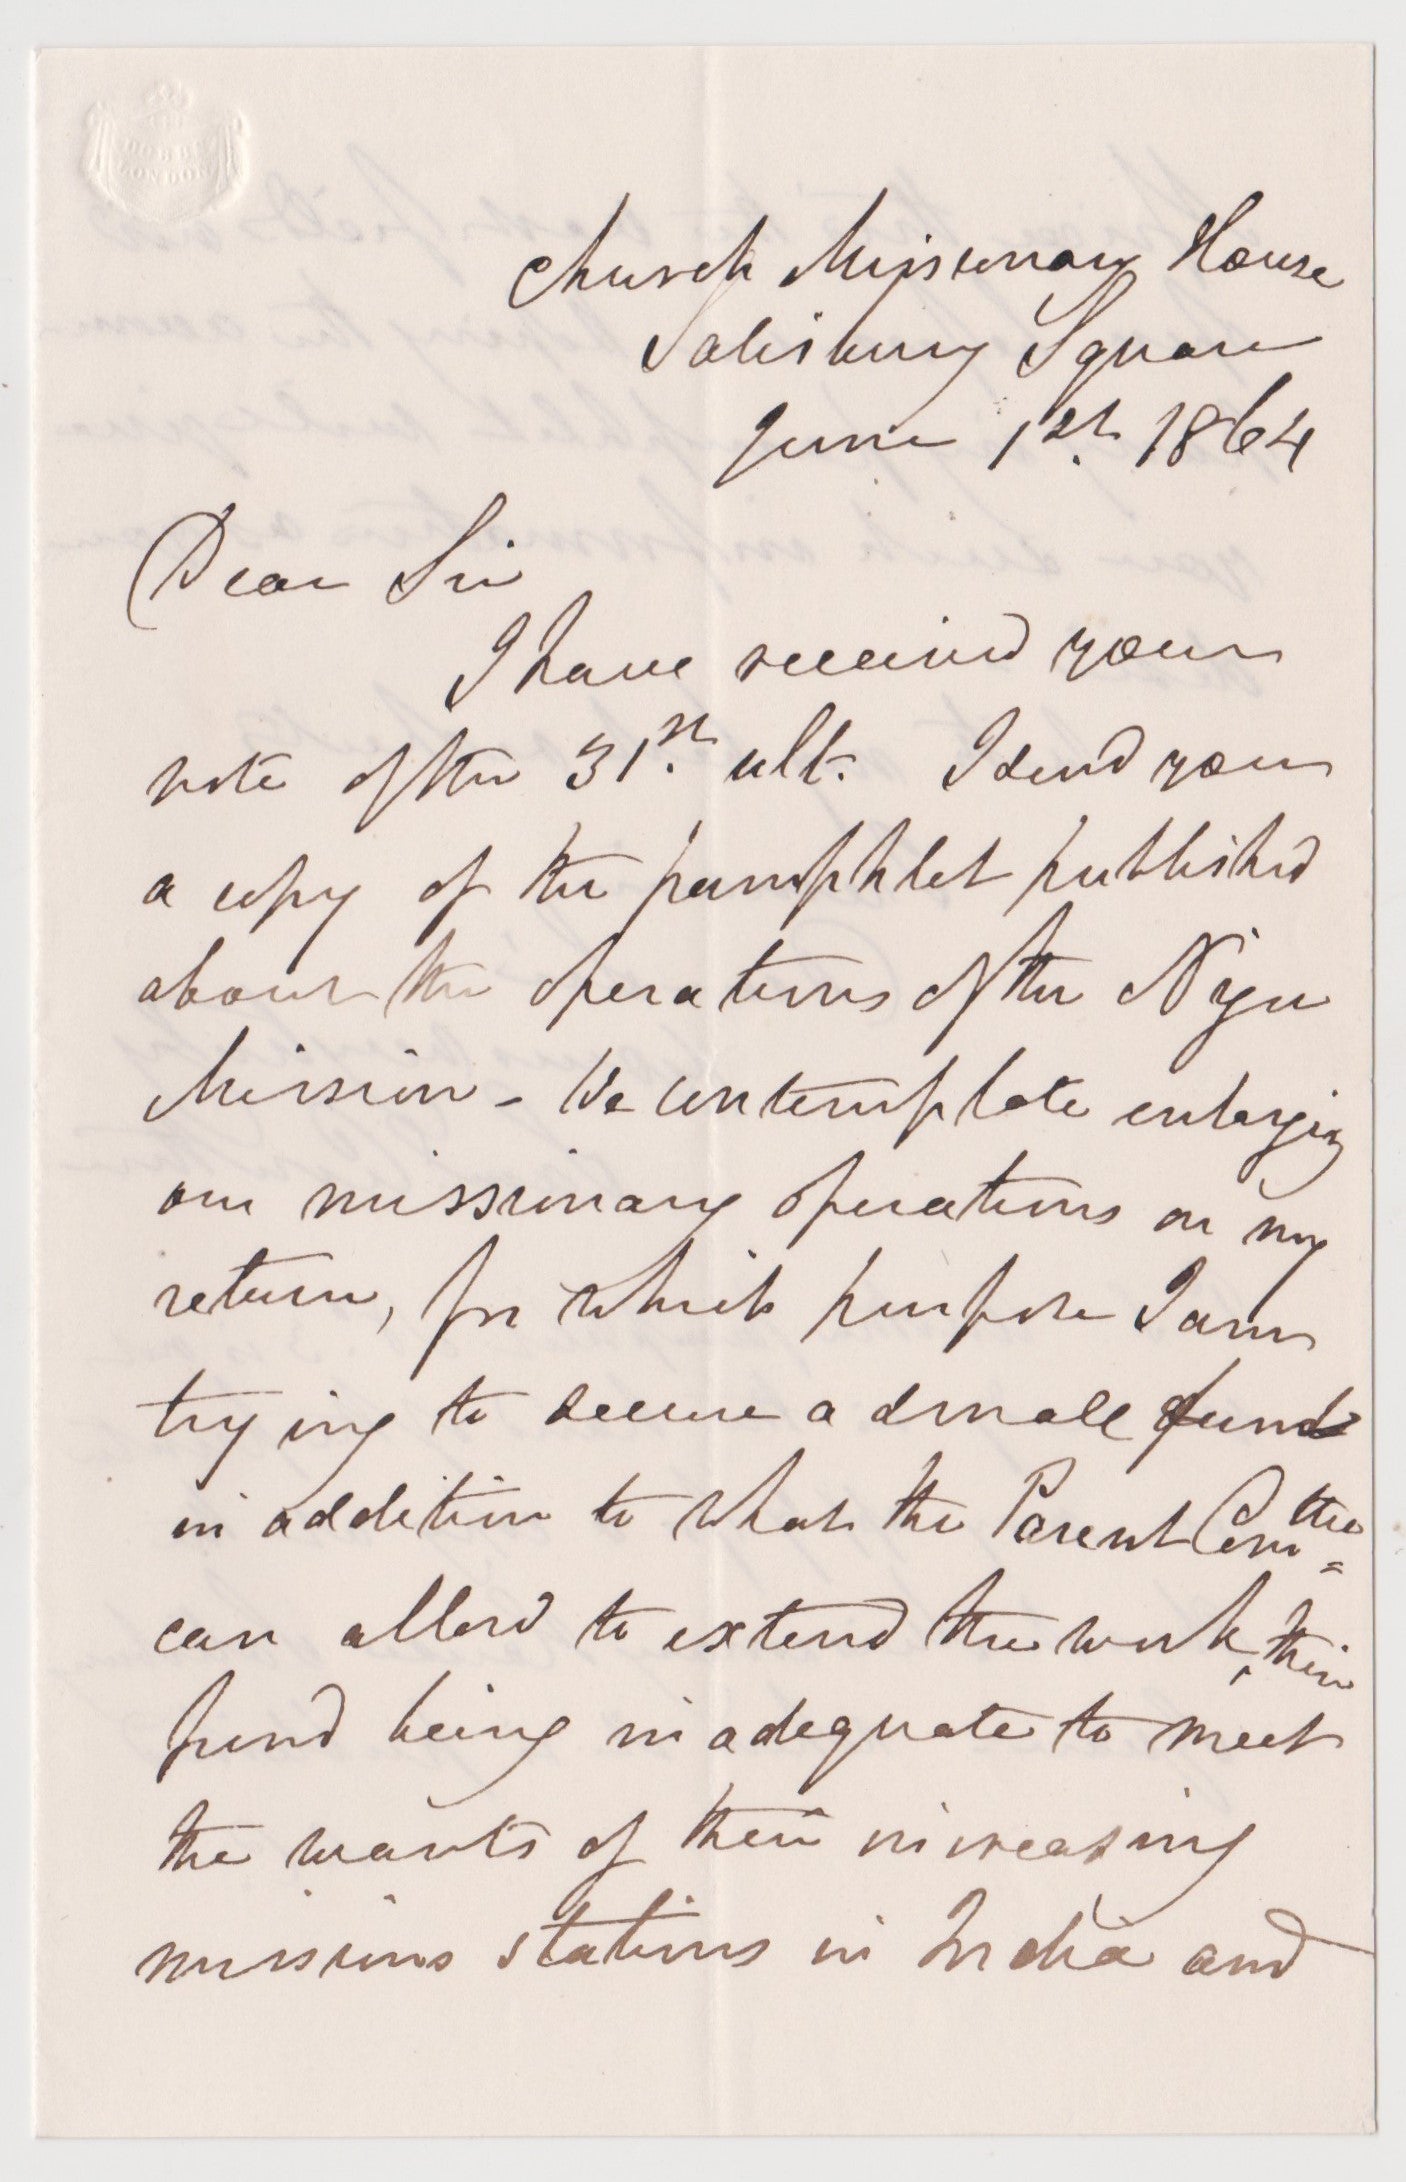 DOBBS
LONDON
Church Missionary House
Salisbury Square
June 1st. 1864
Dear Sir
I have received your
note of the 31st. ult. I send you
a copy of the pamphlet published
about the operations of the Niger
Mission - We contemplate enlarging
our missionary operations on my
return, for which purpose I am
trying to secure a small fund
in addition to what the Parent Comttee
can afford to extend the work, their
fund being inadequate to meet
the wants of their increasing
missions stations in India and